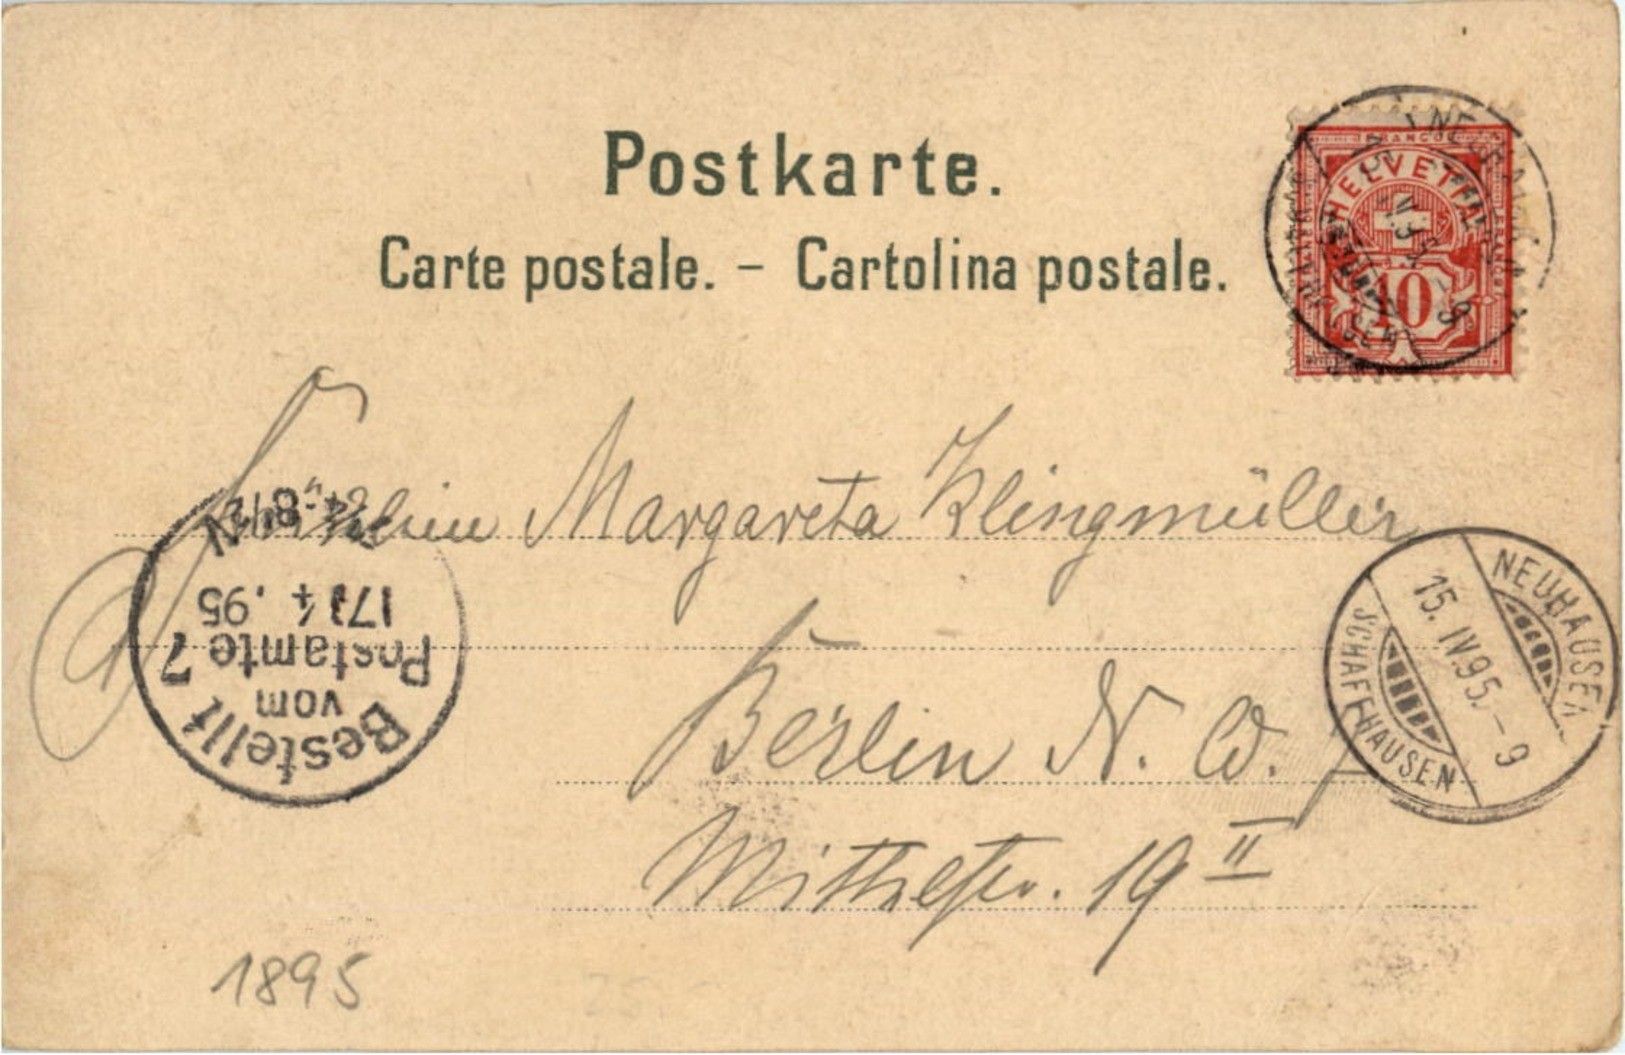 Postkarte.
Carte postale. – Cartolina postale.
FRANCO
HELVETIA
10
Fräulein Margareta Klingmüller
Berlin N. W.
19 II
Bestellt
vom
Postamte 7
17/4.95
8½ N
NEUHAUSEN
15.IV.95.–9
SCHAFFHAUSEN
1895